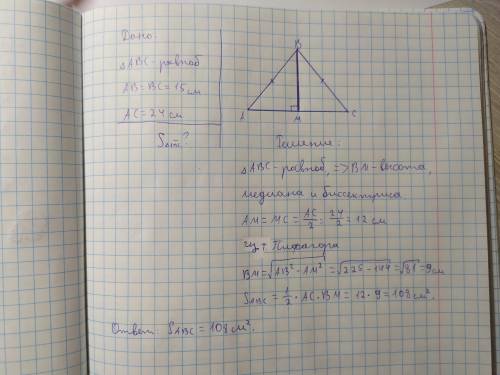 Дано:
△ABC - равноб
AB=BC=15см
AC=24см
S
B
A
M
C
Решение:
△ABC - равноб, => BM - высота,
медиана и биссектриса
AM = MC = AC/2 = 24/2 = 12 см
из т Пифагора
BM = √AB² - AM² = √225 - 144 = √81 = 9см
SABC = 1/2 · AC · BM = 12 · 9 = 108 см².
Ответ: SABC = 108 см².